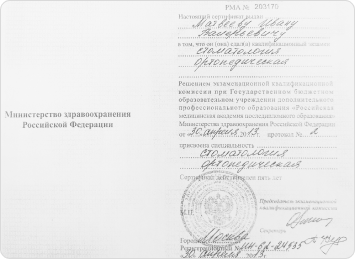 Министерство здравоохранения
Российской Федерации
РМА № 203170
Настоящий сертификат выдан
Матвееву Ивану
Валерьевичу
в том, что он (она) сдал(а) квалификационный экзамен
стоматология
ортопедическая
Решением экзаменационной квалификационной
комиссии при Государственном бюджетном
образовательном учреждении дополнительного
профессионального образования «Российская
медицинская академия последипломного образования»
Министерства здравоохранения Российской Федерации
от 30 апреля 13. протокол № 2
присвоена специальность
стоматология
ортопедическая
Сертификат действителен пять лет
Председатель экзаменационной
квалификационной комиссии
Секретарь
М.П.
Город Москва
Регистрационный №
30 апреля 13.